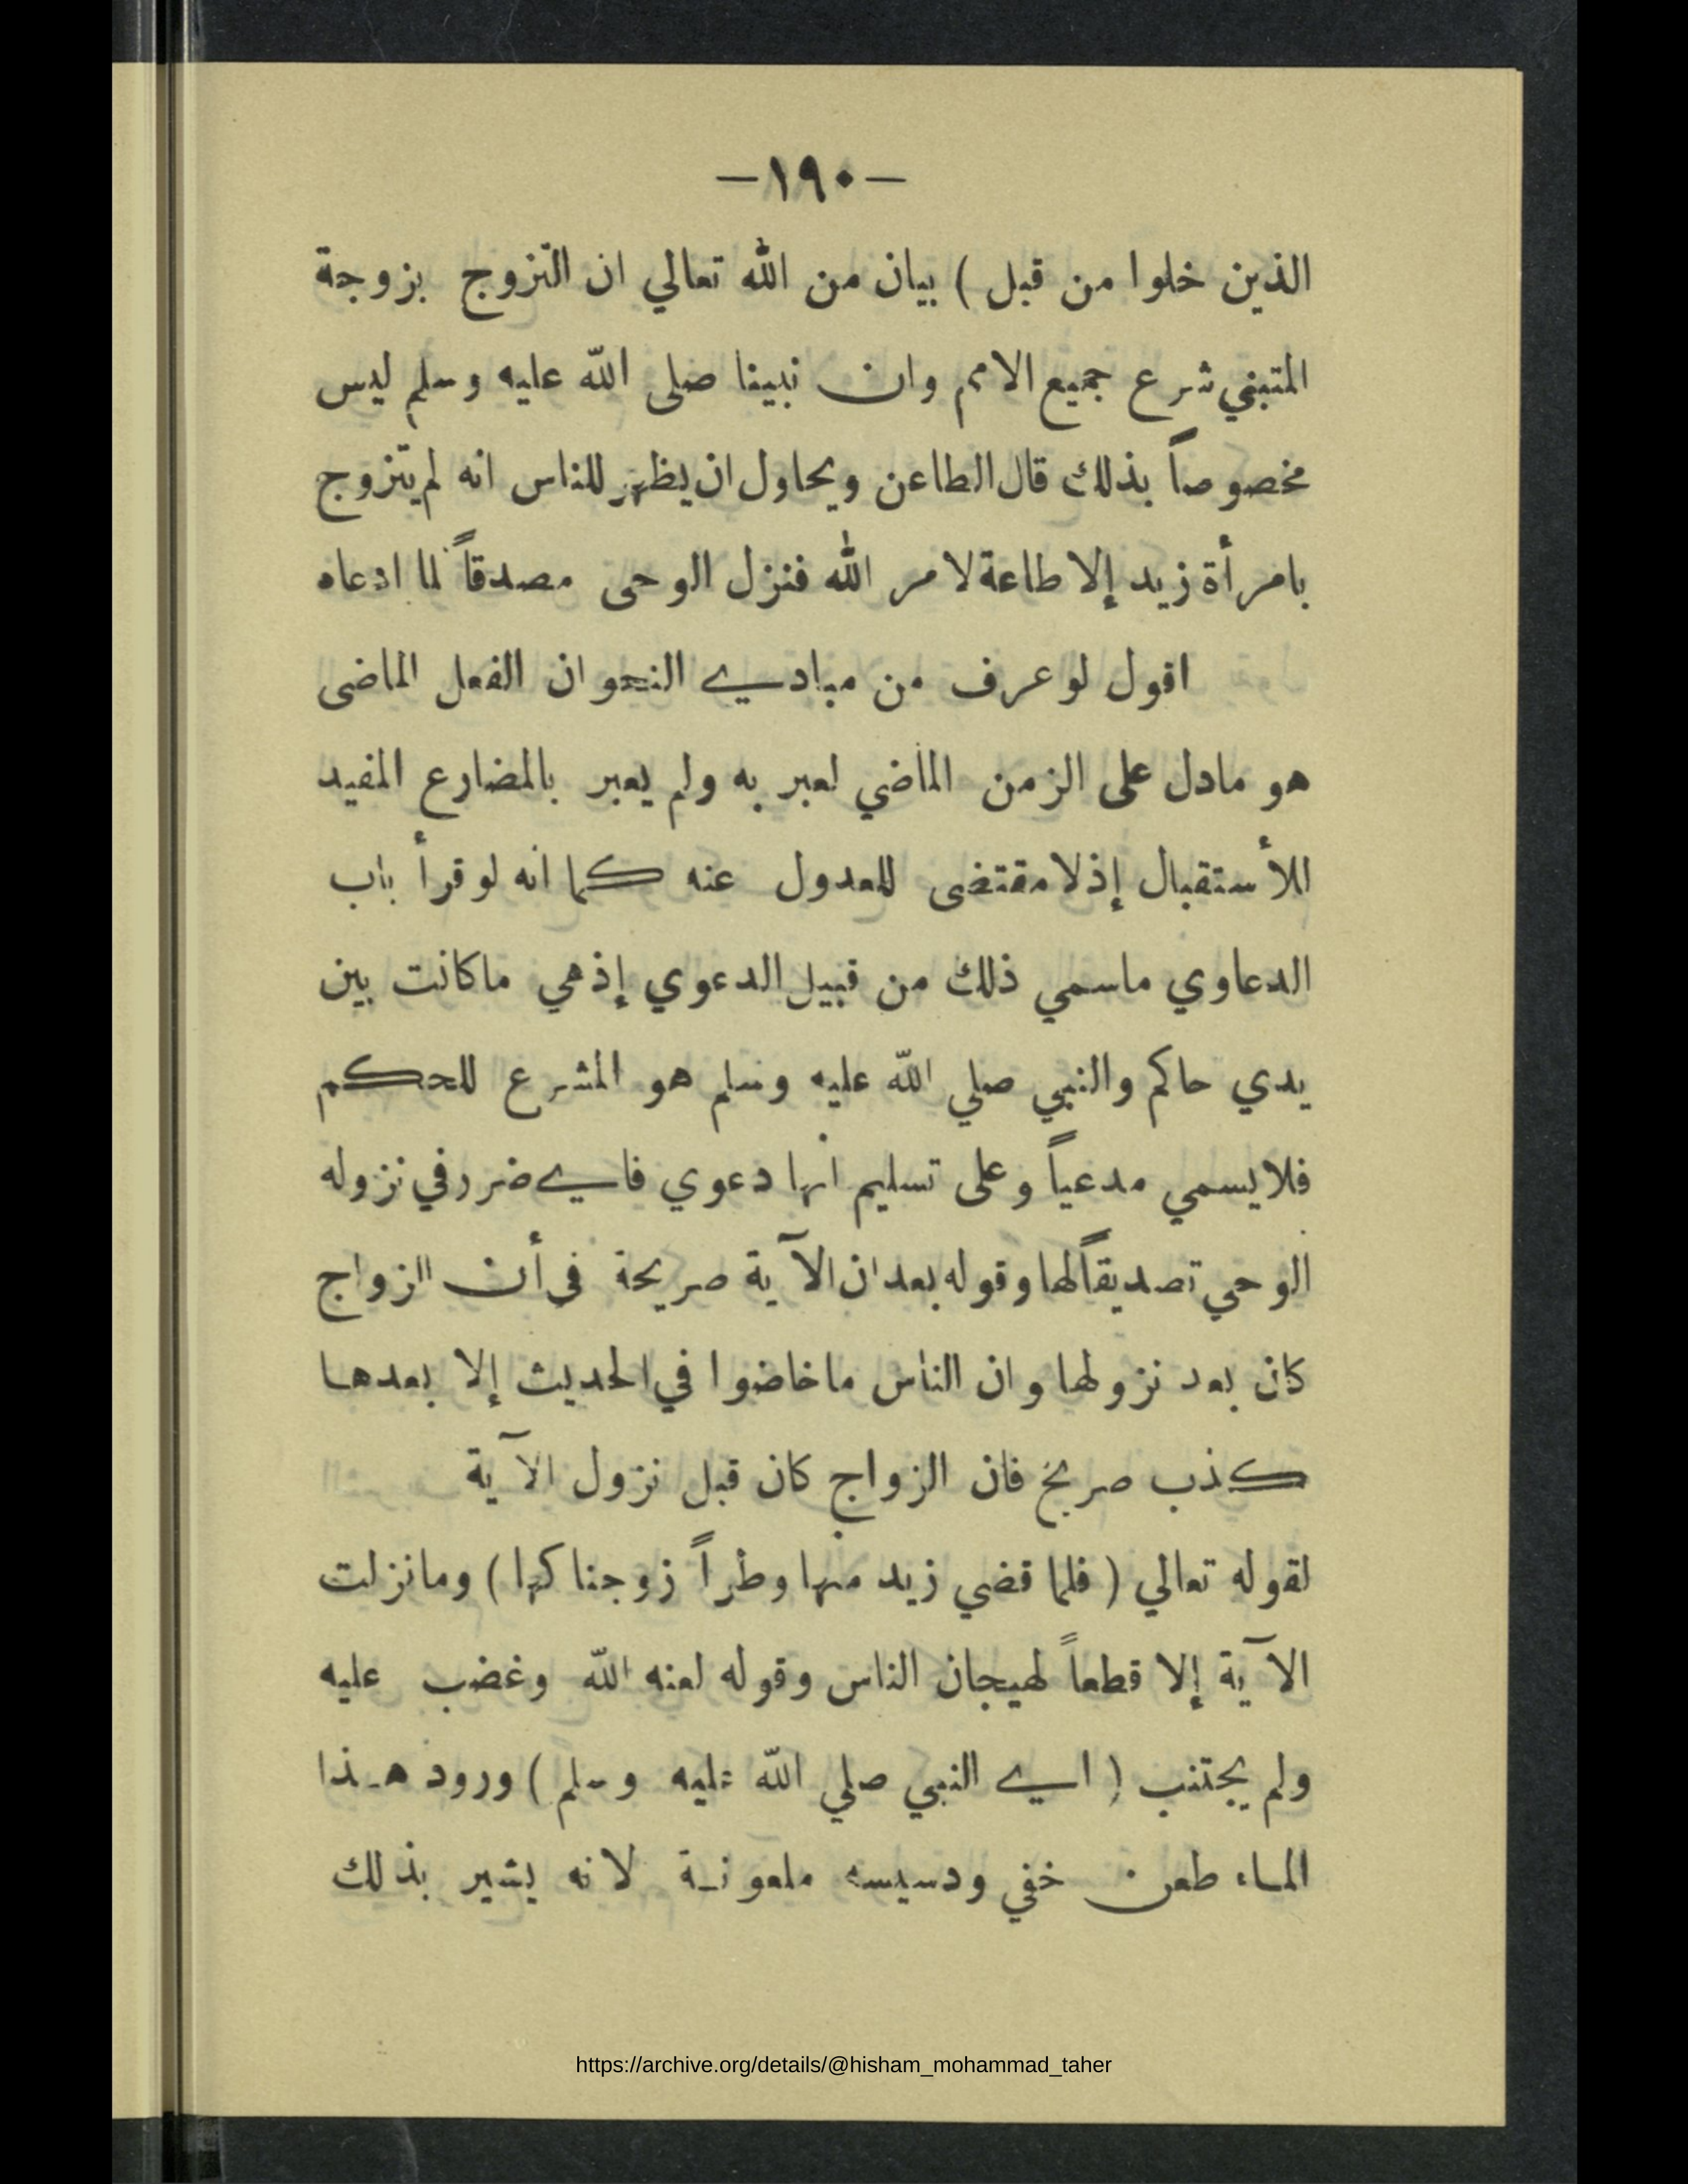 —١٩٠—
الذين خلوا من قبل ) بيان من الله تعالي ان التزوج بزوجة
المتبني شرع جميع الامم وان نبينا صلى الله عليه وسلم ليس
مخصوصاً بذلك قال الطاعن ويحاول ان يظهر للناس انه لم يتزوج
بامرأة زيد إلا طاعة لامر الله فنزل الوحى مصدقاً لما ادعاه
اقول لو عرف من مبادي النحو ان الفعل الماضى
هو مادل على الزمن الماضي لعبر به ولم يعبر بالمضارع المفيد
للأستقبال إذ لا مقتضى للعدول عنه كما انه لو قرأ باب
الدعاوي ماسمي ذلك من قبيل الدعوي إذ هي ماكانت بين
يدي حاكم والنبي صلي الله عليه وسلم هو المشرع للحكم
فلا يسمي مدعياً وعلى تسليم انها دعوي فاي ضرر في نزوله
الوحي تصديقاً لها وقوله بعد ان الآية صريحة فى أن الزواج
كان بعد نزولها وان الناس ماخاضوا في الحديث إلا بعدها
كذب صريح فان الزواج كان قبل نزول الآية
لقوله تعالي ( فلما قضي زيد منها وطراً زوجناكها ) ومانزلت
الآية إلا قطعاً لهيجان الناس وقوله لعنه الله وغضب عليه
ولم يجتنب ( اي النبي صلي الله عليه وسلم ) ورود هذا
الماء طعن خفي ودسيسه ملعونة لانه يشير بذلك
https://archive.org/details/@hisham_mohammad_taher